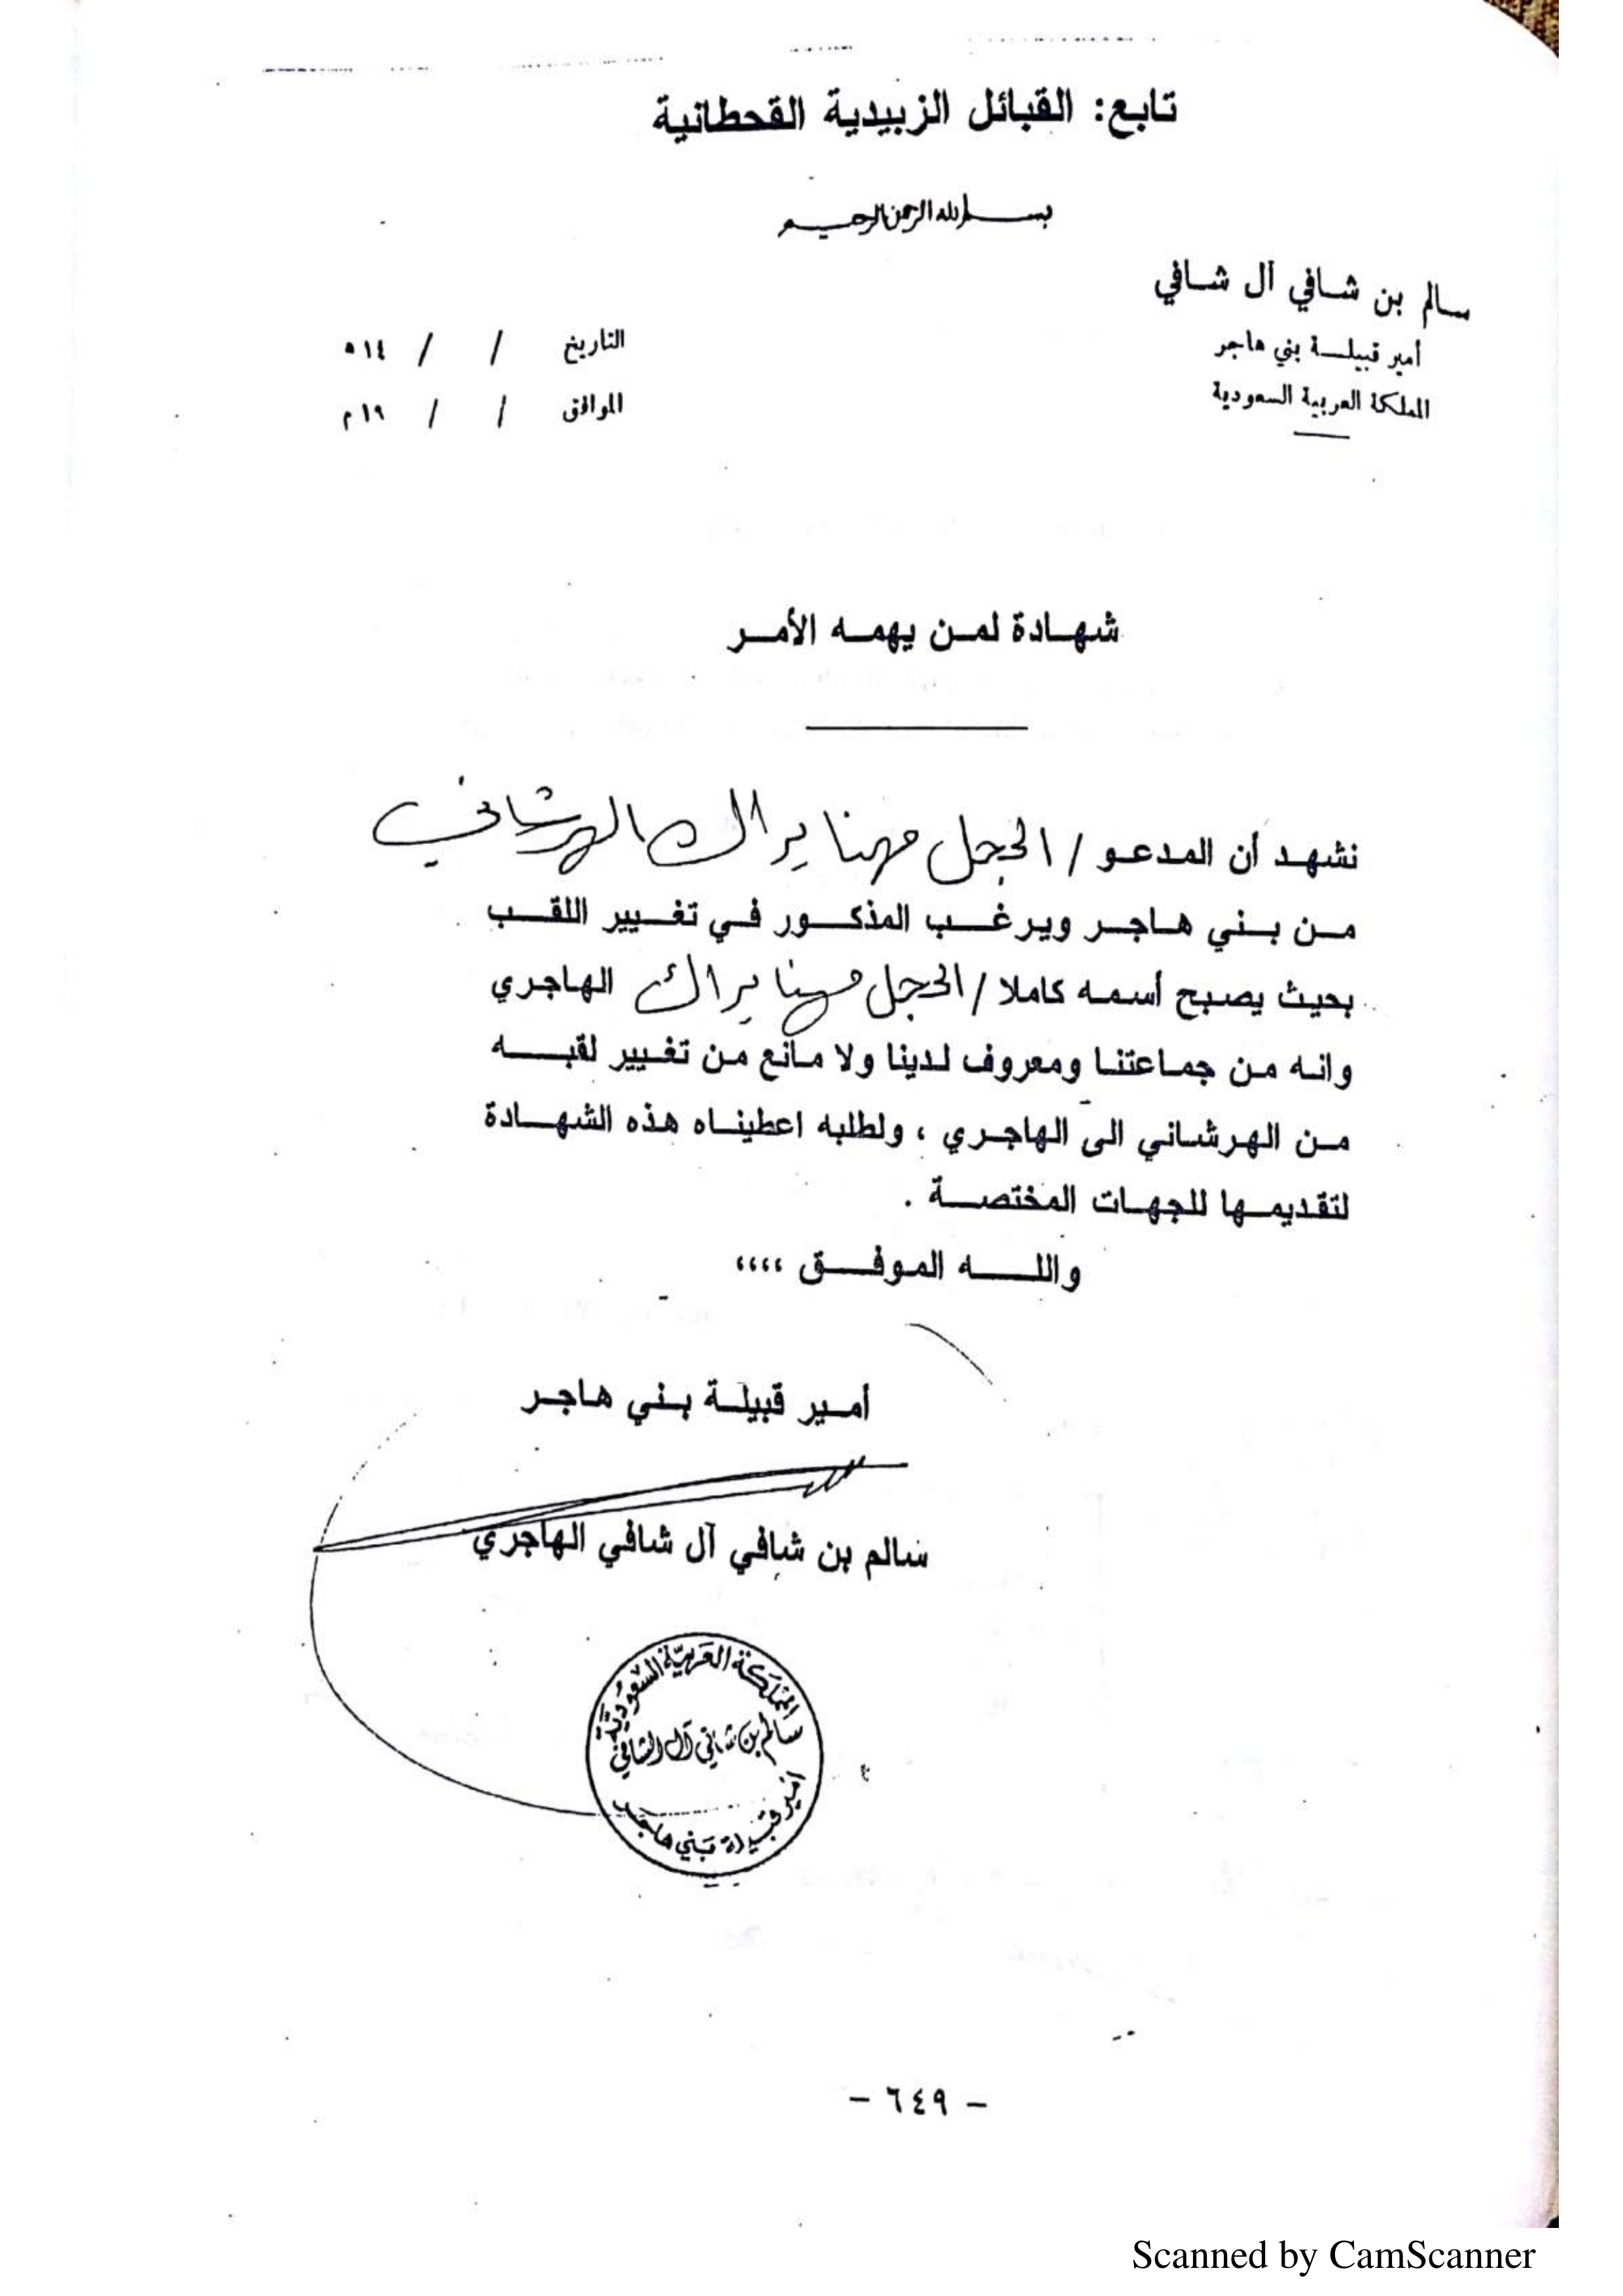 تابع: القبائل الزبيدية القحطانية
بسم الله الرحمن الرحيم
سالم بن شافي آل شافي
أمير قبيلة بني هاجر
المملكة العربية السعودية
التاريخ / / ١٤ه
الموافق / / ١٩م
شهادة لمن يهمه الأمر
نشهد أن المدعو / الحجل مهنا براك الهرشاني
من بني هاجر ويرغب المذكور في تغيير اللقب
بحيث يصبح أسمه كاملا / الحجل مهنا براك الهاجري
وانه من جماعتنا ومعروف لدينا ولا مانع من تغيير لقبه
من الهرشاني الى الهاجري ، ولطلبه اعطيناه هذه الشهادة
لتقديمها للجهات المختصة .
والله الموفق ،،،،
أمير قبيلة بني هاجر
سالم بن شافي آل شافي الهاجري
المملكة العربية السعودية
سالم بن شافي آل الشافي
امير قبيلة بني هاجر
- ٦٤٩ -
Scanned by CamScanner